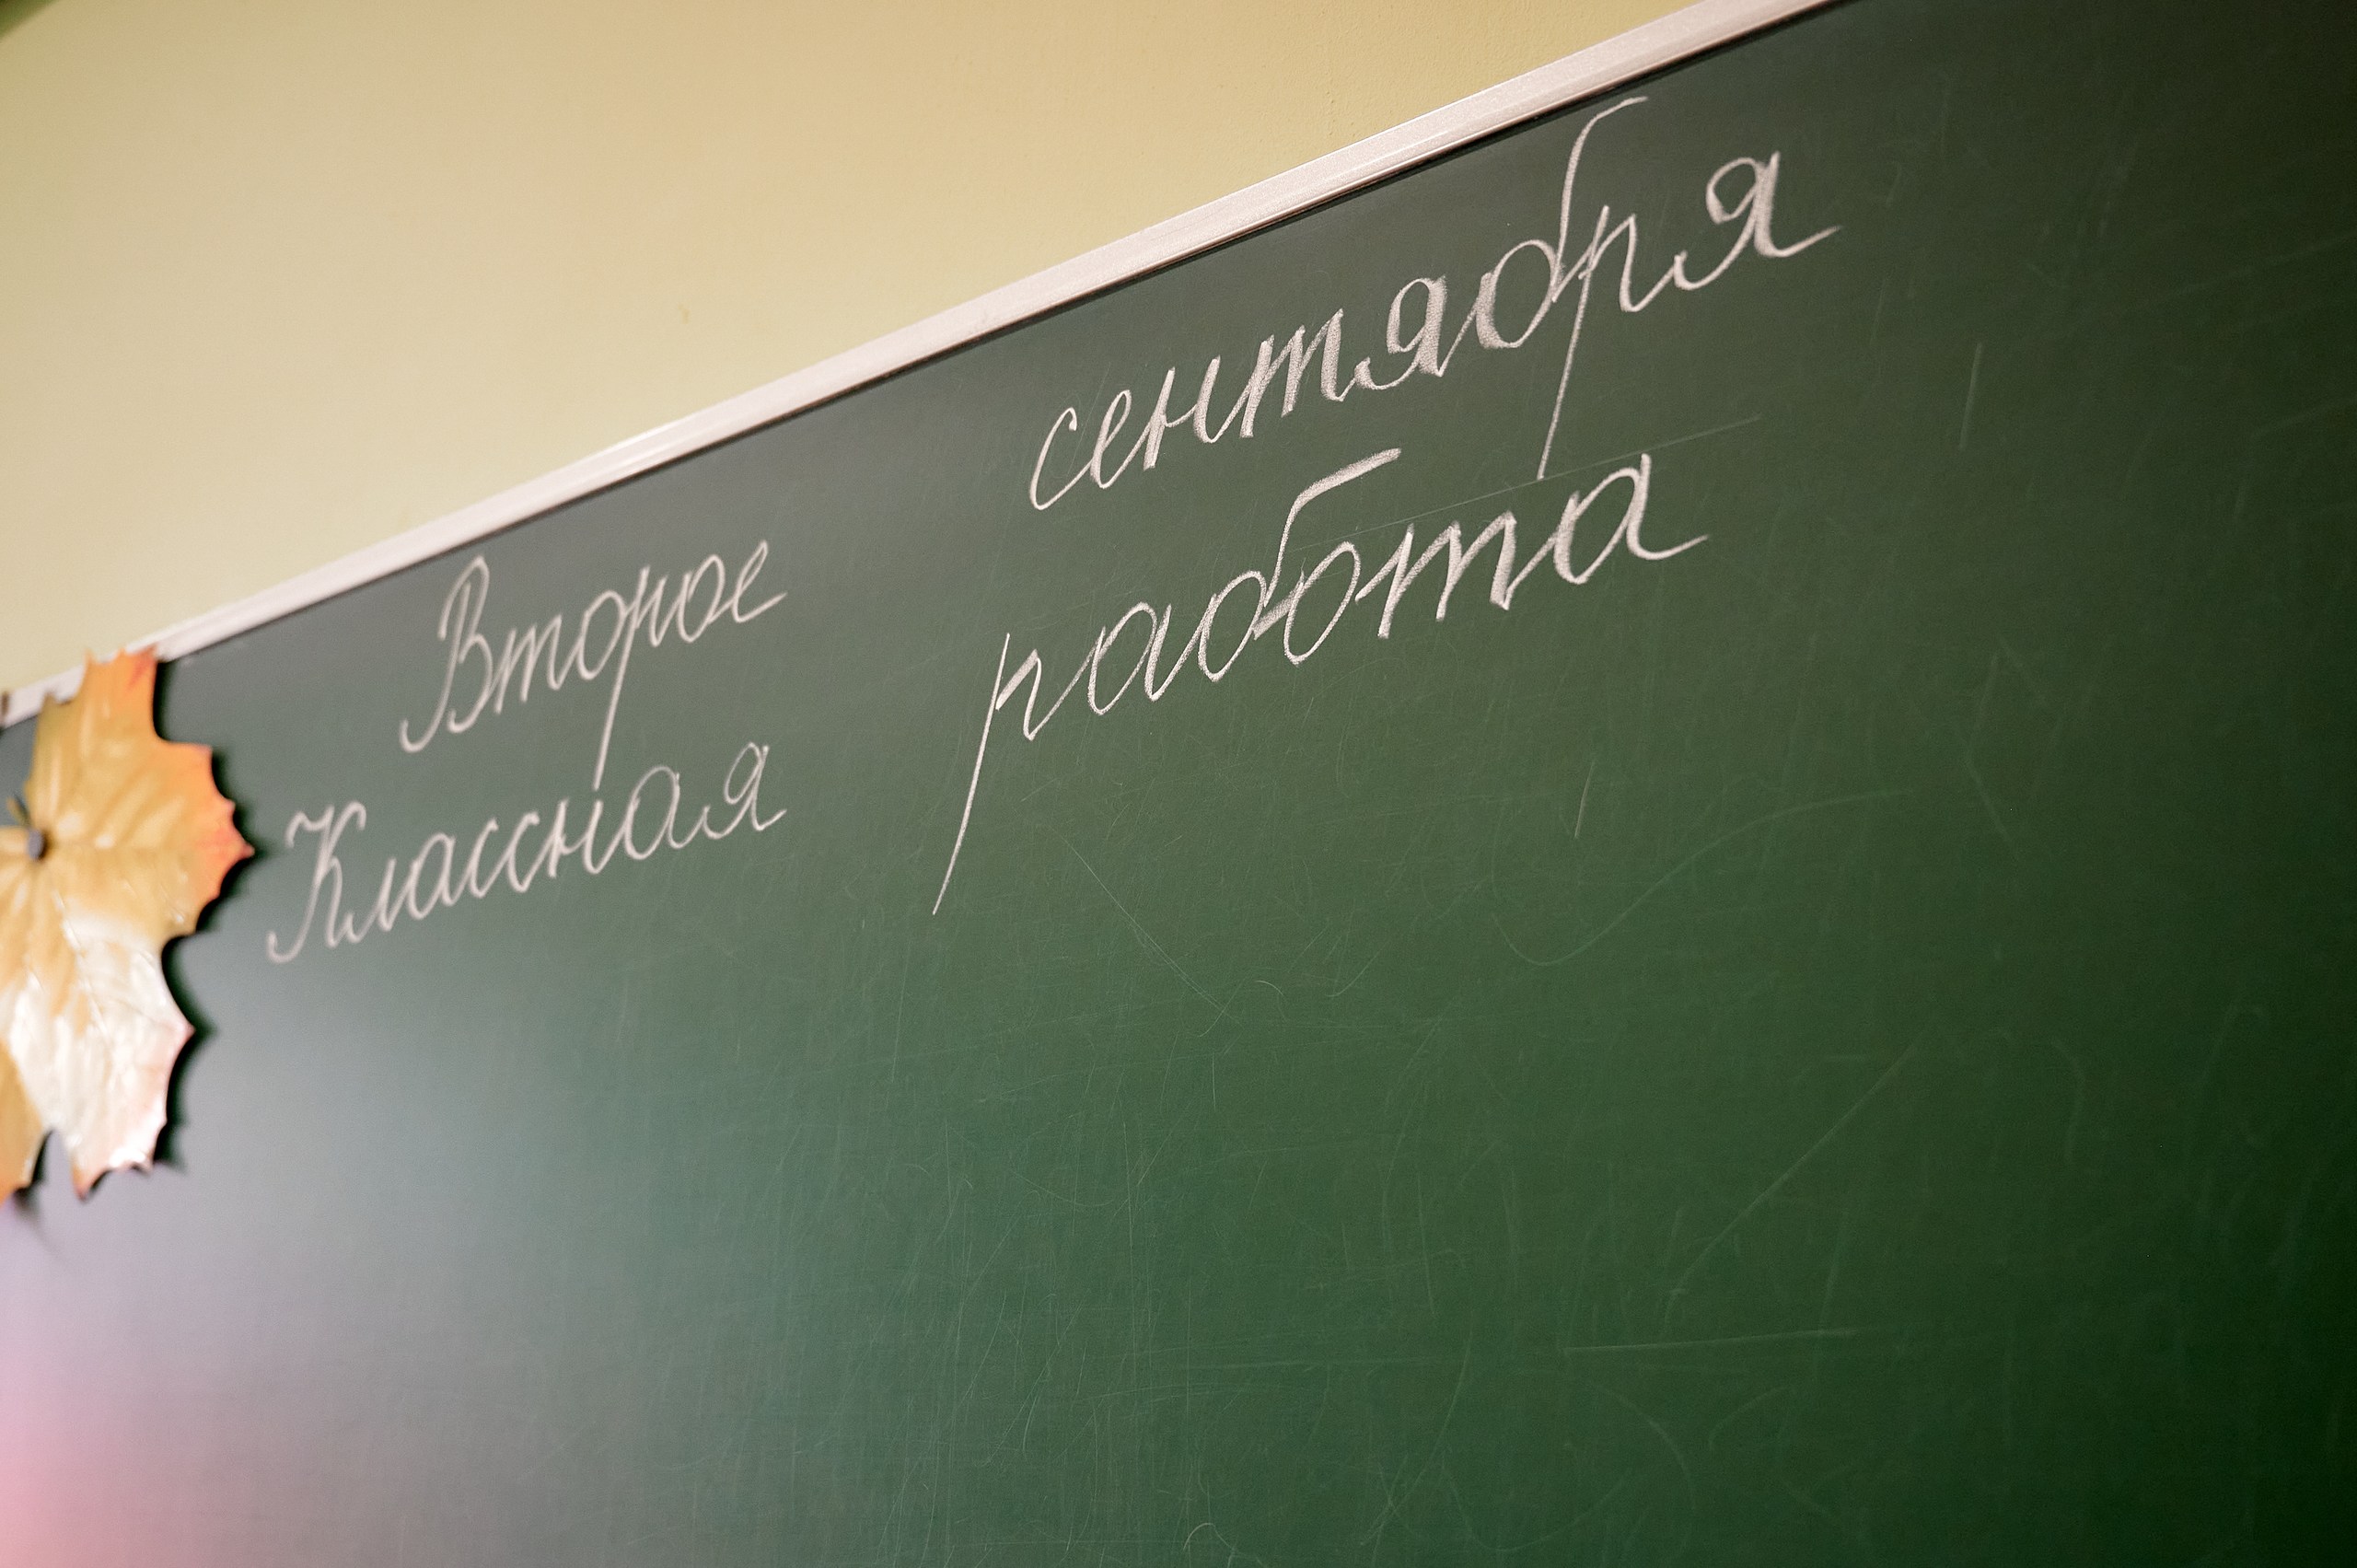 Второе сентября
Классная работа